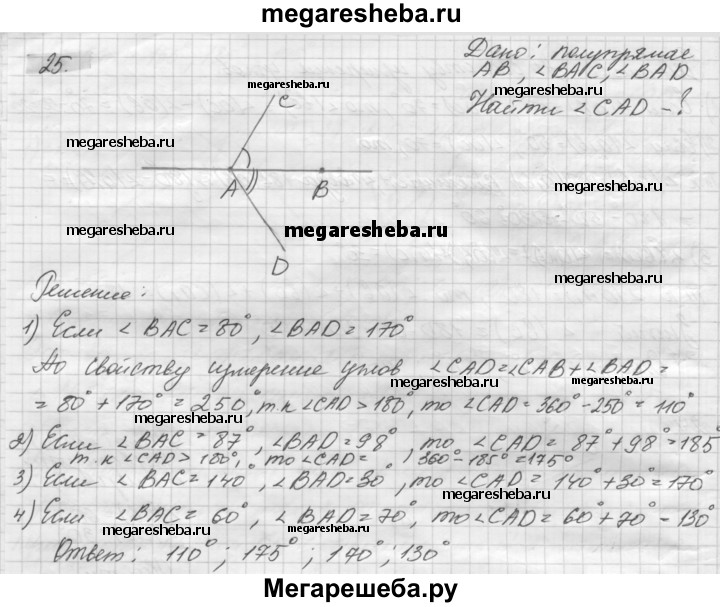 megaresheba.ru
25.
Дано: полупрямае
AB, ∠BAC, ∠BAD
Найти ∠CAD - ?
megaresheba.ru
megaresheba.ru
C
megaresheba.ru
megaresheba.ru
A
B
megaresheba.ru
megaresheba.ru
megaresheba.ru
D
megaresheba.ru
Решение:
1) Если ∠BAC = 80°, ∠BAD = 170°
По свойству измерение углов ∠CAD = ∠CAB + ∠BAD =
megaresheba.ru
= 80° + 170° = 250°, т.к ∠CAD > 180°, то ∠CAD = 360° - 250° = 110°
megaresheba.ru
2) Если ∠BAC = 87°, ∠BAD = 98°, то ∠CAD = 87° + 98° = 185°
т.к ∠CAD > 180°, то ∠CAD = 360° - 185° = 175°
megaresheba.ru
3) Если ∠BAC = 140°, ∠BAD = 30°, то ∠CAD = 140° + 30° = 170°
megaresheba.ru
4) Если ∠BAC = 60°, ∠BAD = 70°, то ∠CAD = 60° + 70° = 130°
megaresheba.ru
megaresheba.ru
megaresheba.ru
Ответ: 110°; 175°; 170°; 130°
Мегарешеба.ру